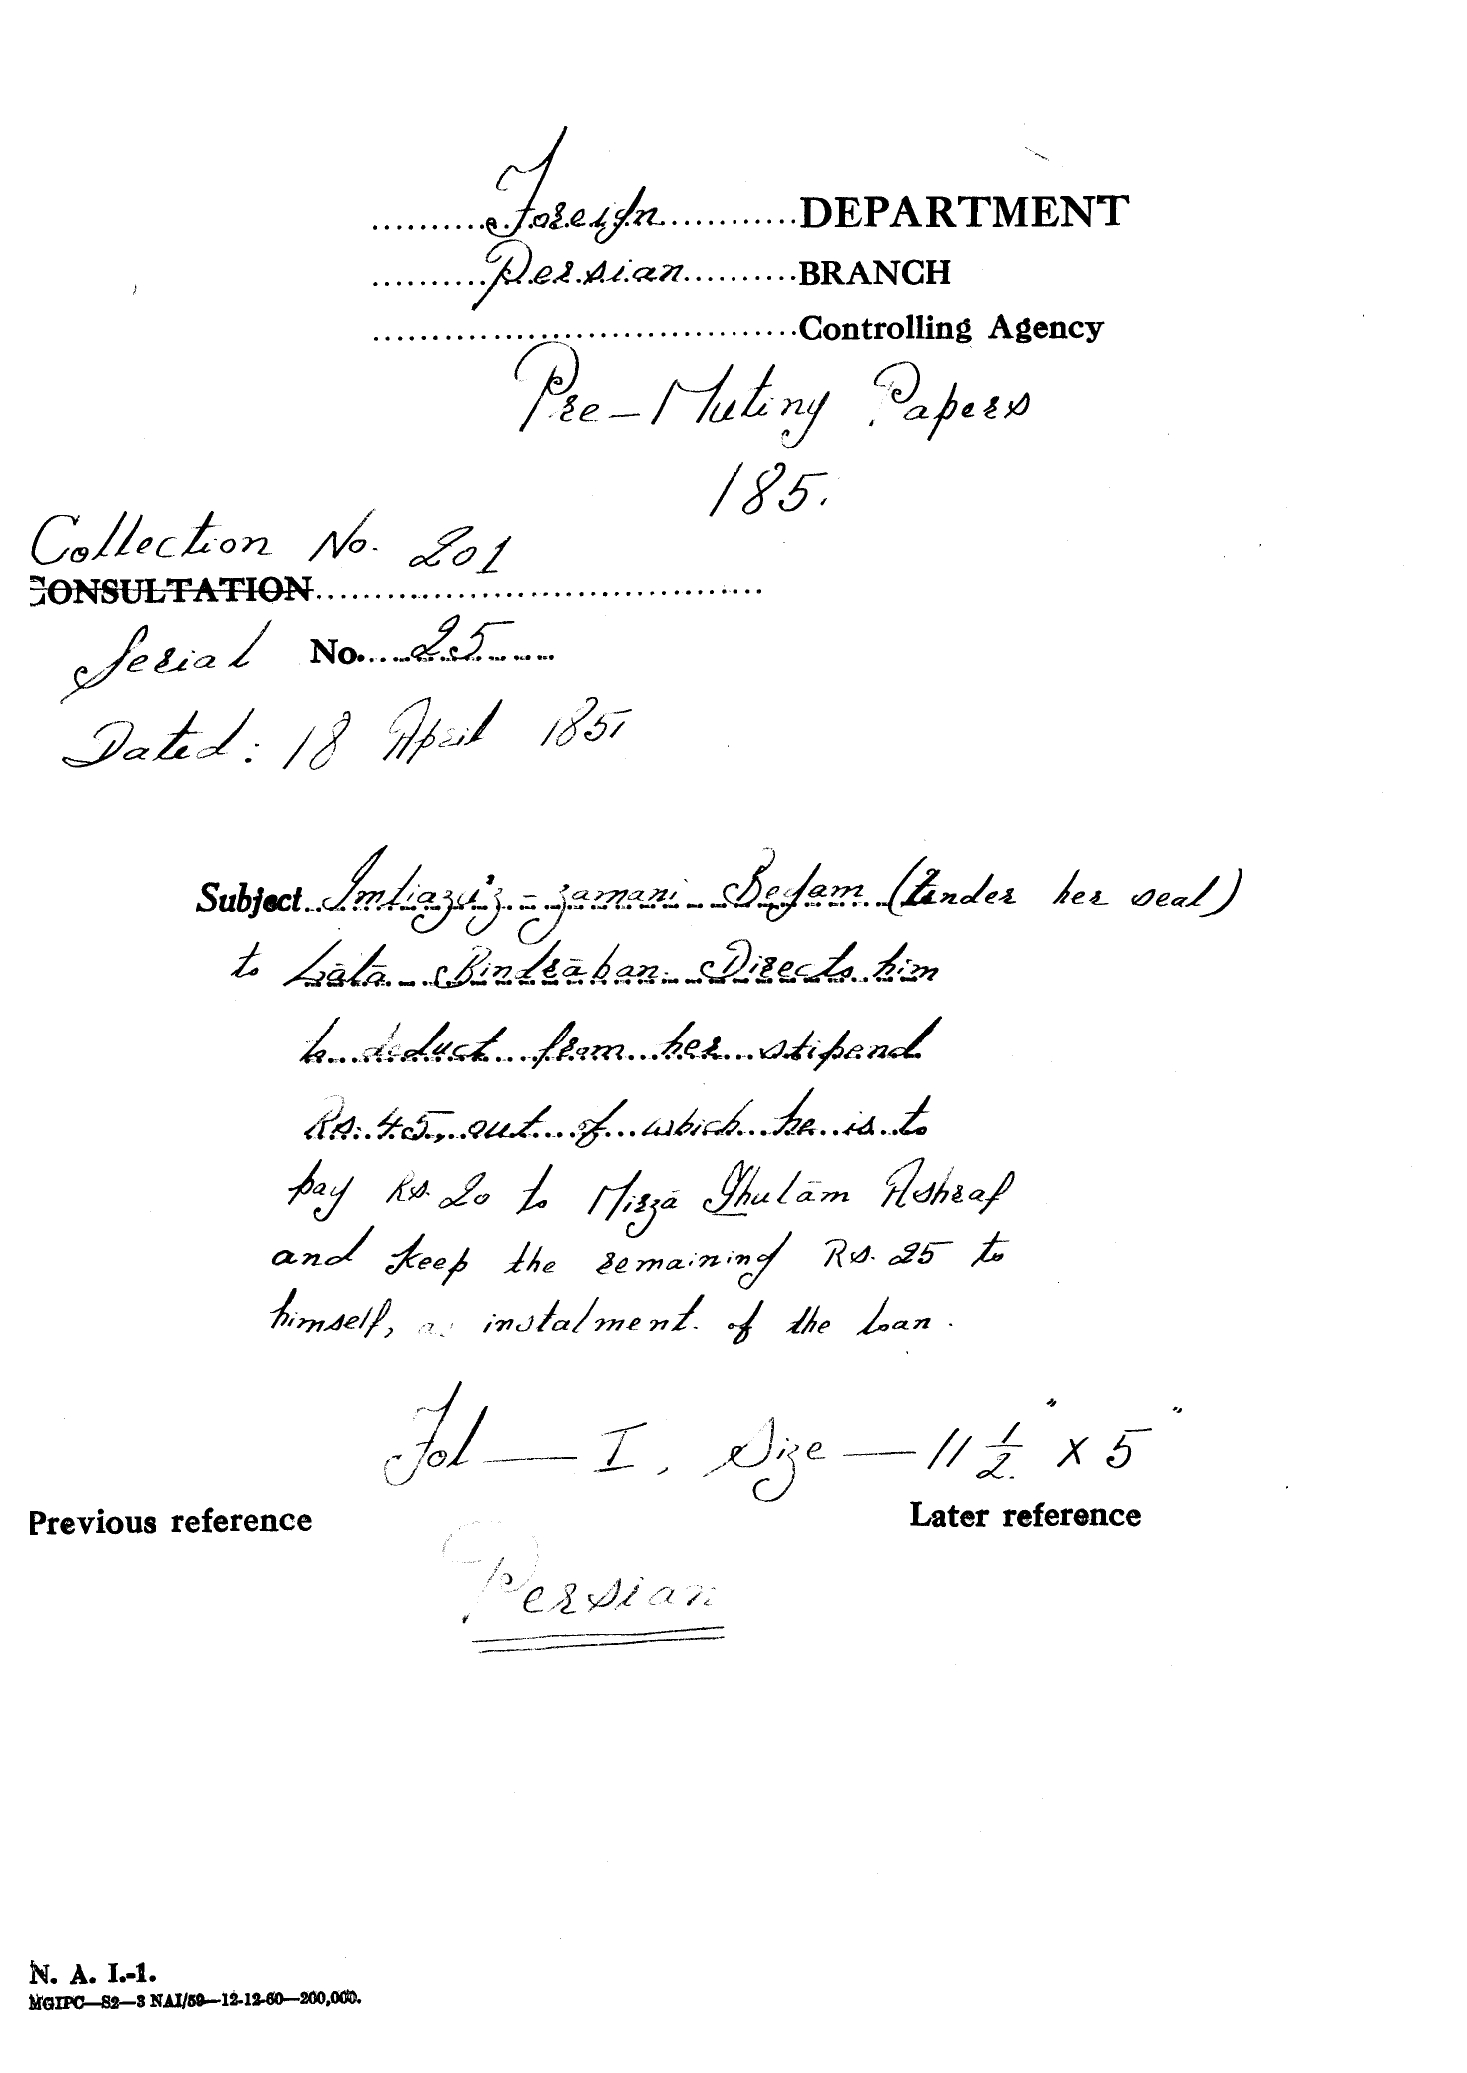 Foreign DEPARTMENT
Persian BRANCH
Controlling Agency
Pre-Mutiny Papers
185.
Collection No. 201
CONSULTATION
Serial No. 25
Dated: 18 April 1851
Subject Imtiazu'z-zamani Begam (Under her seal)
to Lālā Bindrāban. Directs him
to deduct from her stipend
Rs. 45, out of which he is to
pay Rs. 20 to Mirzā Ghulām Ashraf
and keep the remaining Rs. 25 to
himself, as instalment. of the loan.
Fol — I, Size — 11 1/2" x 5"
Previous reference Later reference
Persian
N. A. I.-1.
MGIPC—S2—3 NAI/59—12-12-60—200,000.